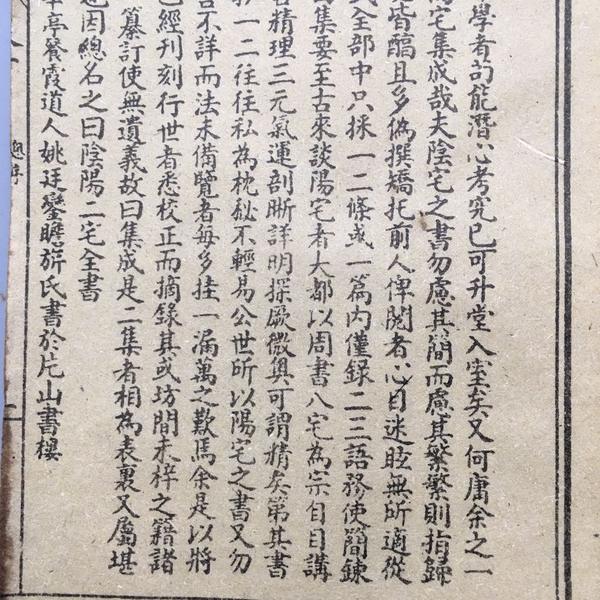 學者苟能潛心考究已可升堂入室矣又何庸余之一
宅集成哉夫陰宅之書勿慮其簡而慮其繁繁則指歸
皆醕且多偽撰矯托前人俾閱者心目迷眩無所適從
全部中只採一二條或一篇內僅錄二三語務使簡鍊
集要至古來談陽宅者大都以周書八宅為宗自目講
精理三元氣運剖晰詳明探厥微奧可謂精矣第其書
一二往往私為枕秘不輕易公世所以陽宅之書又勿
不詳而法未備覽者每多挂一漏萬之歎焉余是以將
經刊刻行世者悉校正而摘錄其或坊間未梓之籍諸
纂訂使無遺義故曰集成是二集者相為表裏又屬堪
因總名之曰陰陽二宅全書
亭餐霞道人姚廷鑾瞻旂氏書於片山書樓
總序
二